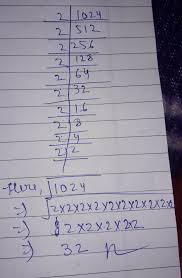 2 | 1024
2 | 512
2 | 256
2 | 128
2 | 64
2 | 32
2 | 16
2 | 8
2 | 4
2 | 2
Here, √1024
=) √2×2×2×2×2×2×2×2×2×2
=) 2×2×2×2×2
=) 32